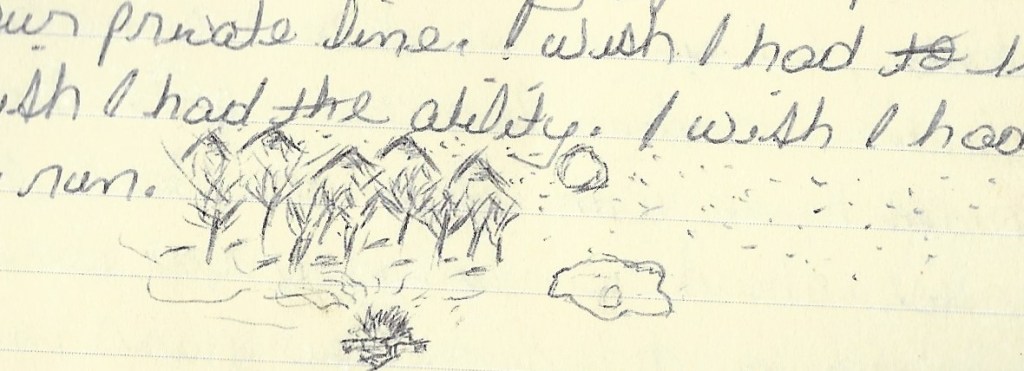 private line. I wish I had to
I had the ability. I wish I had
run.